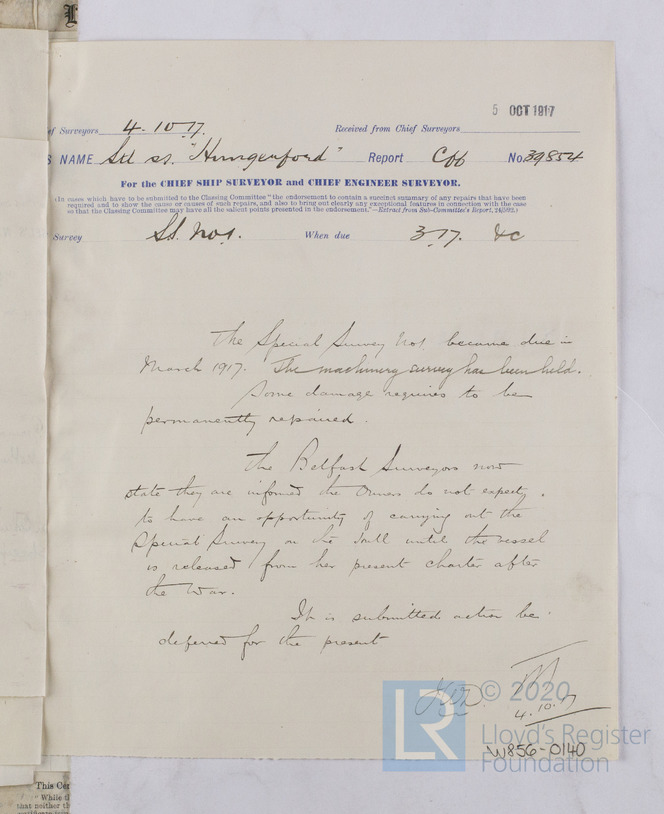 5 OCT 1917
of Surveyors 4.10.17. Received from Chief Surveyors
S NAME Stl ss. "Hungerford" Report Bff No. 39854
For the CHIEF SHIP SURVEYOR and CHIEF ENGINEER SURVEYOR.
(In cases which have to be submitted to the Classing Committee "the endorsement to contain a succinct summary of any repairs that have been
required and to show the cause or causes of such repairs, and also to bring out clearly any exceptional features in connection with the case
so that the Classing Committee may have all the salient points presented in the endorsement."—Extract from Sub-Committee's Report,
Survey SS. No1. When due 3.17. &c
The Special Survey No1 became due in
March 1917. The machinery survey has been held.
Some damage requires to be
permanently repaired.
The Belfast Surveyors now
state they are informed the Owners do not expect
to have an opportunity of carrying out the
Special Survey on the hull until the vessel
is released from her present charter after
the War.
It is submitted action be
deferred for the present
4.10.17
© 2020
LR
Lloyd's Register
Foundation
W856-0140
This Cer
"While t
that neither th